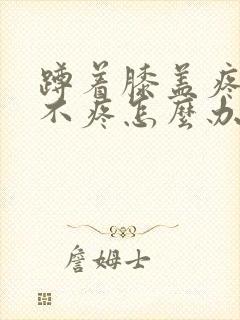 蹲着膝盖疼
不疼怎麼办
詹姆士